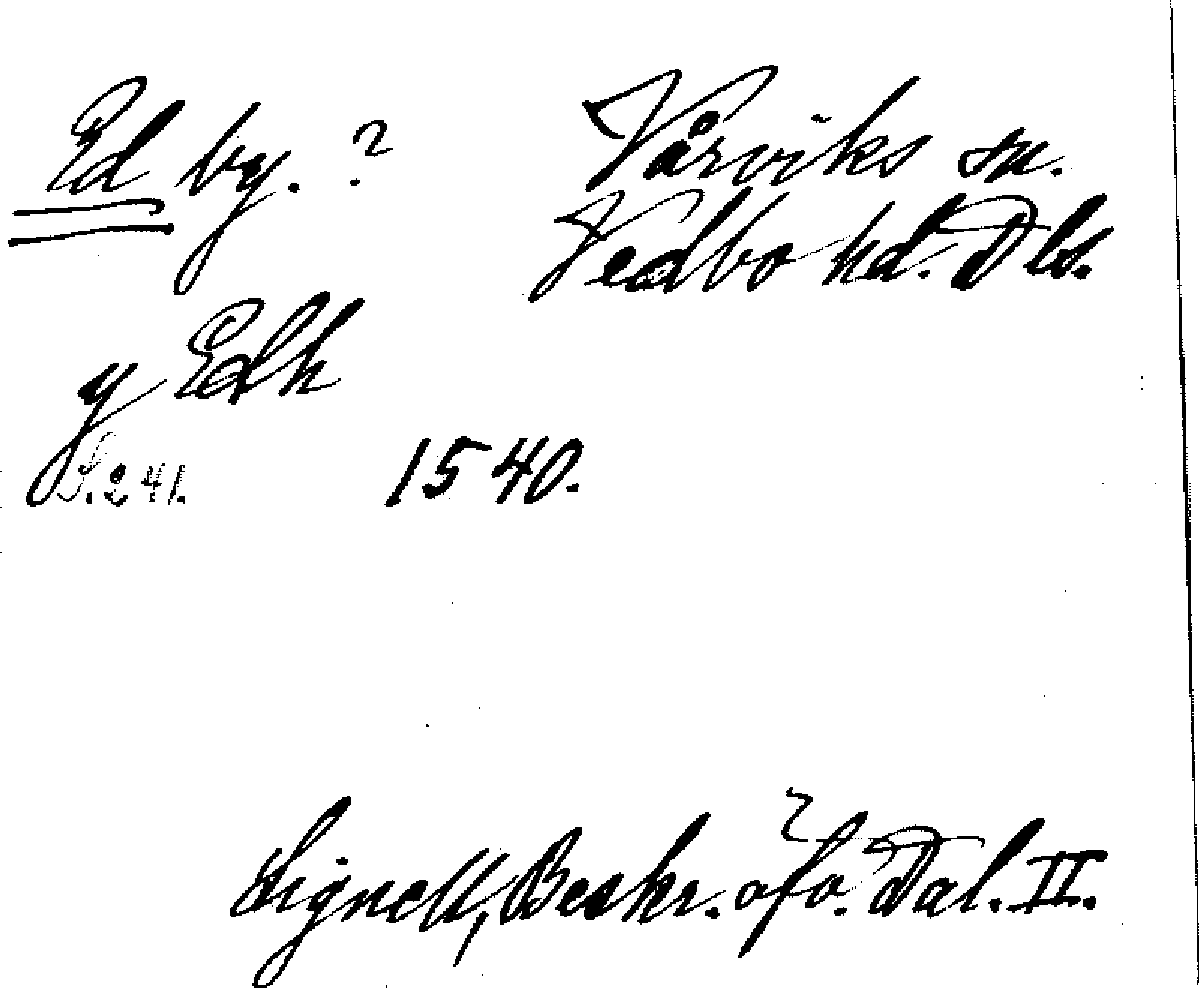 Ed by. ?
Vårviks sn.
Vedbo hd. Dls.
y Edh
S. 241.
1540.
Lignell, Beskr. öfv. Dal. II.